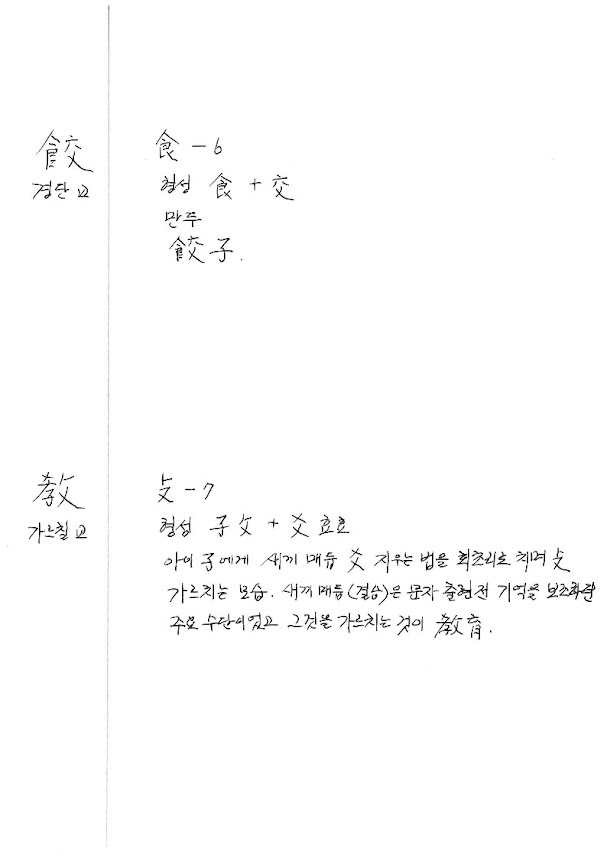 餃
경단 교
食 - 6
형성 食 + 交
만두
餃子.
教
가르칠 교
攵 - 7
형성 子攵 + 爻 효효
아이 子에게 새끼 매듭 爻 지우는 법을 회초리로 치며 攵
가르치는 모습. 새끼 매듭(결승)은 문자 출현전 기억을 보조하는
주요 수단이었고 그것을 가르치는 것이 敎育.